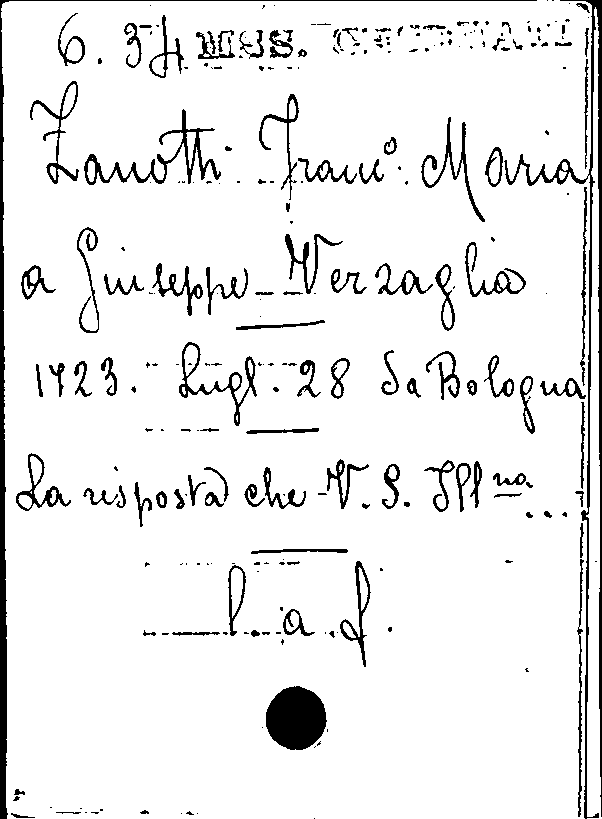 6. 34 MSS.
Zanotti Franc.º Maria
a Giuseppe Verzaglia
1723. Lugl. 28 da Bologna
La risposta che V. S. Ill.ma ...
l. a. f.